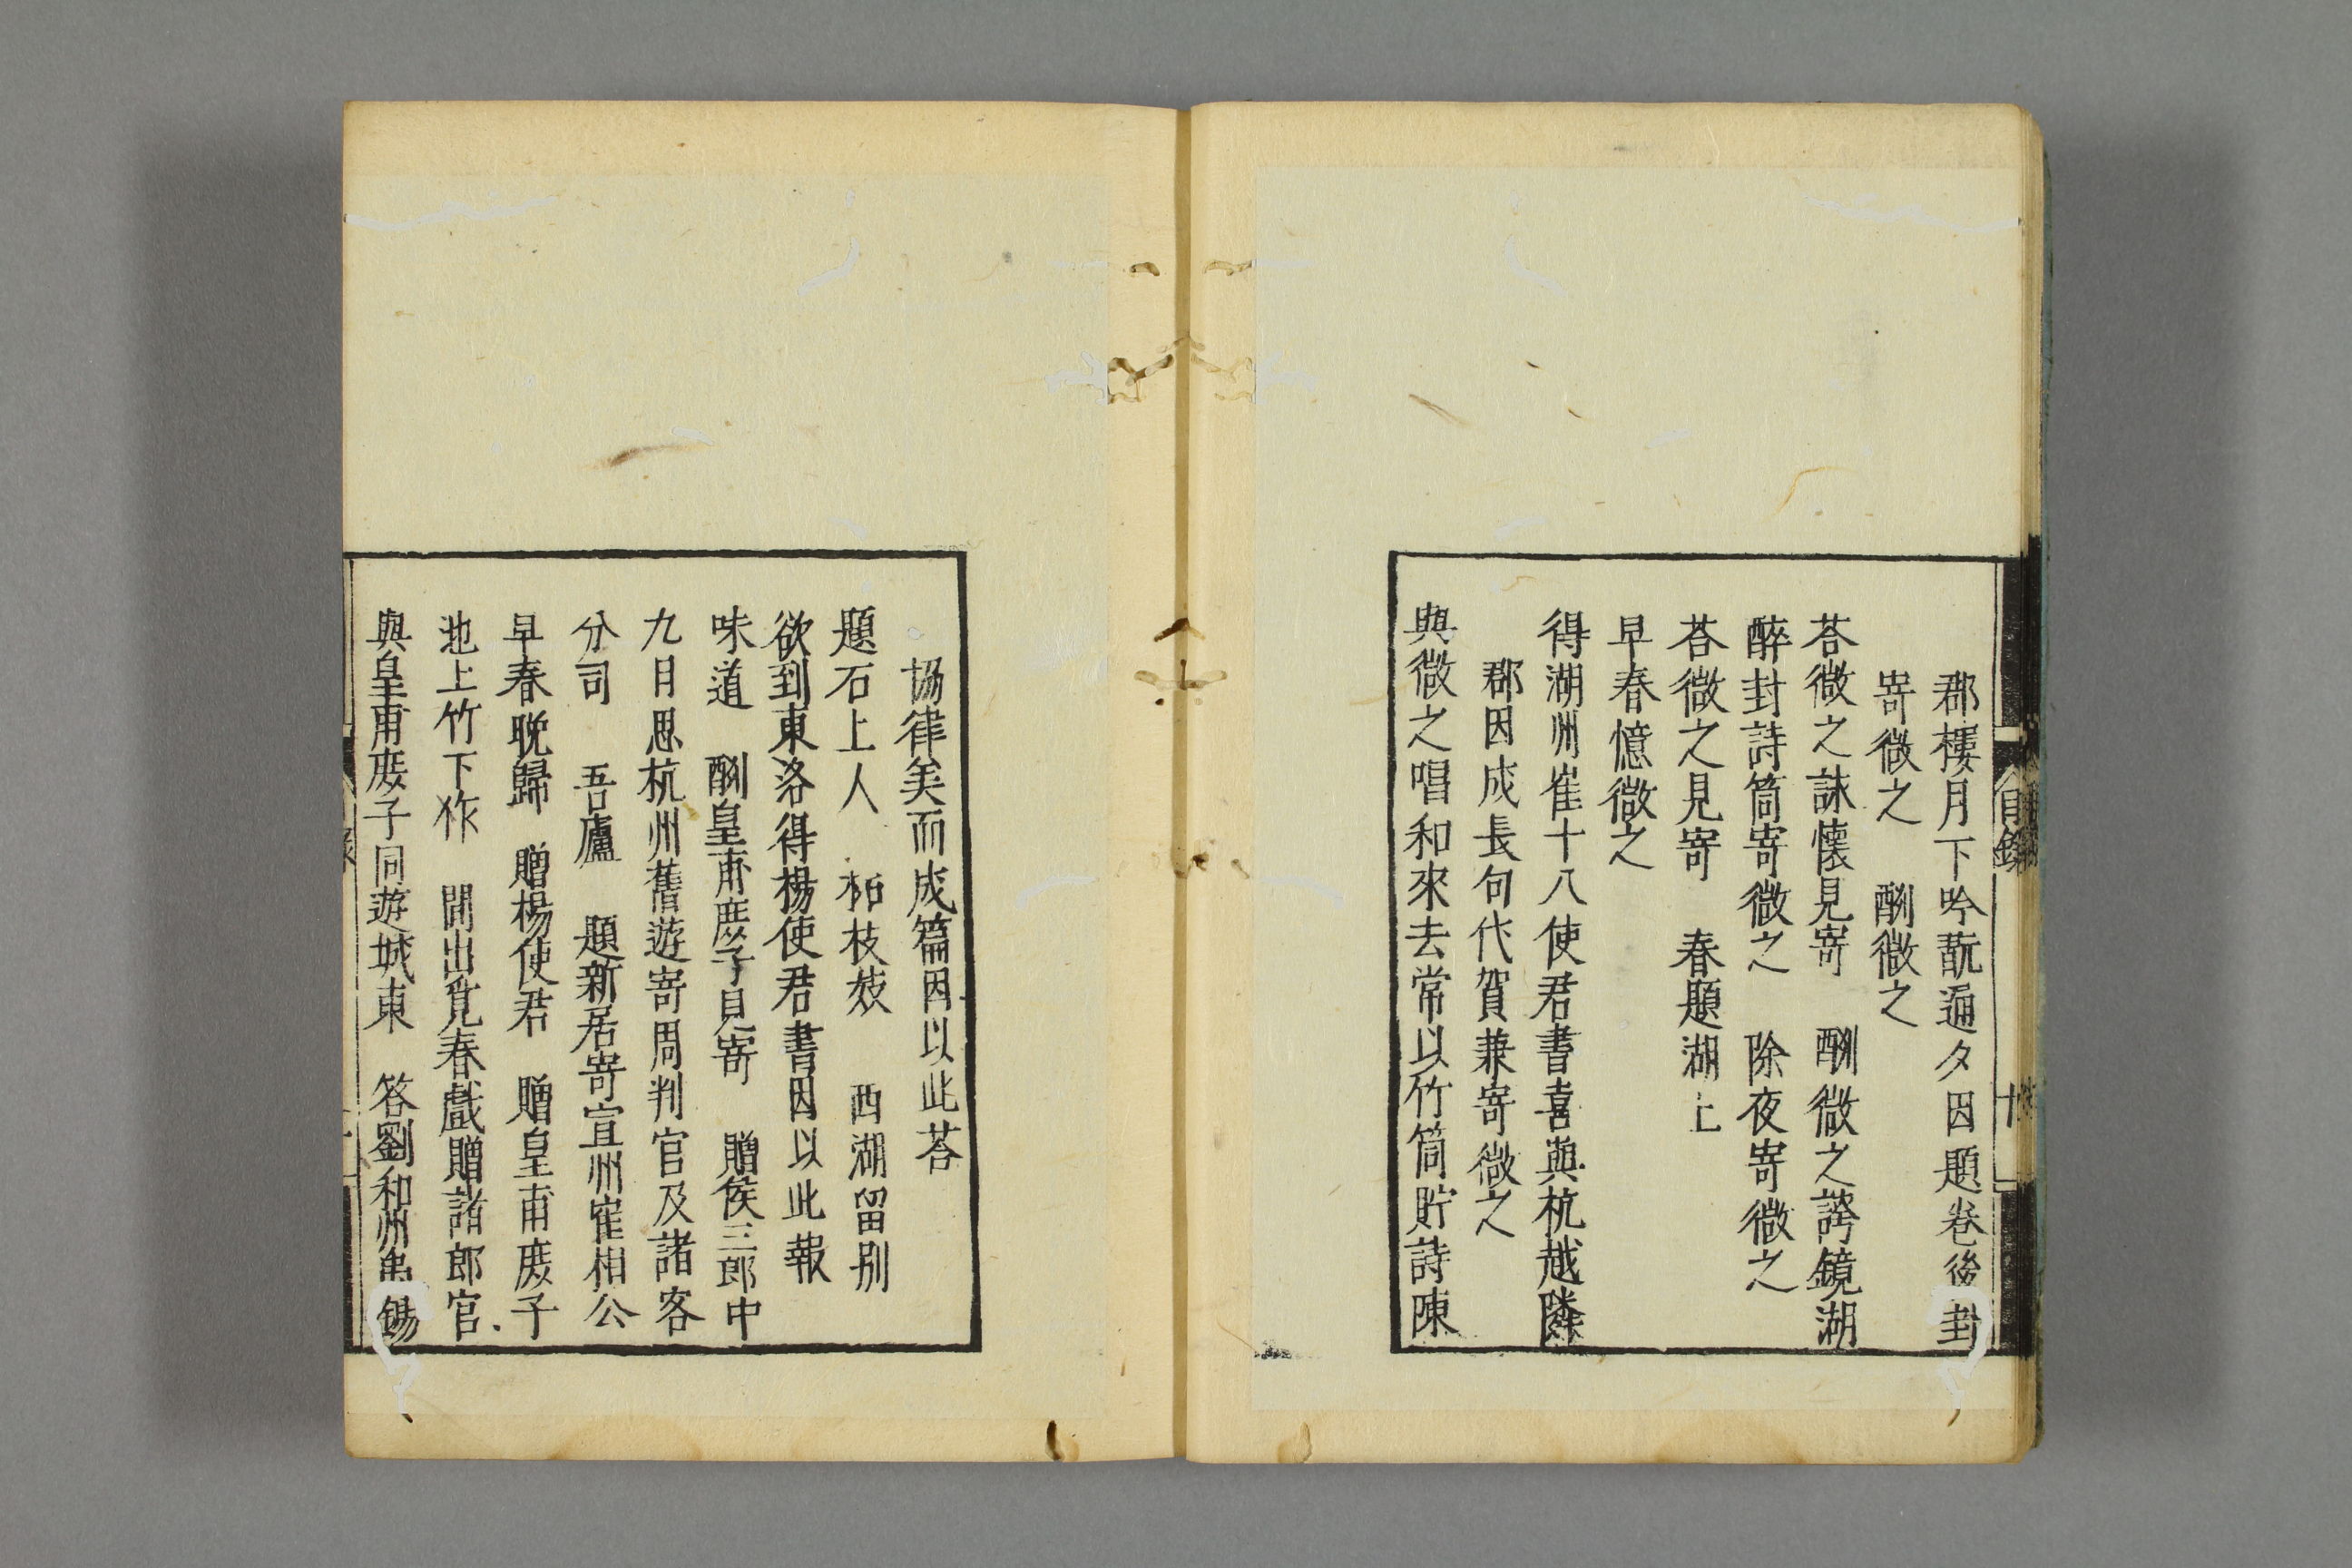 郡樓月下吟翫通夕因題卷後封
寄微之　酬微之
荅微之詠懷見寄　酬微之誇鏡湖
醉封詩筒寄微之　除夜寄微之
荅微之見寄　春題湖上
早春憶微之
得湖州崔十八使君書喜與杭越隣
郡因成長句代賀兼寄微之
與微之唱和來去常以竹筒貯詩陳
協律美而成篇因以此荅
題石上人　柘枝妓　西湖留别
欲到東洛得楊使君書因以此報
味道　酬皇甫庶子見寄　贈侯三郎中
九日思杭州舊遊寄周判官及諸客
分司　吾廬　題新居寄宣州崔相公
早春晚歸　贈楊使君　贈皇甫庶子
池上竹下作　閒出覓春戲贈諸郎官
與皇甫庶子同遊城東　答劉和州禹錫